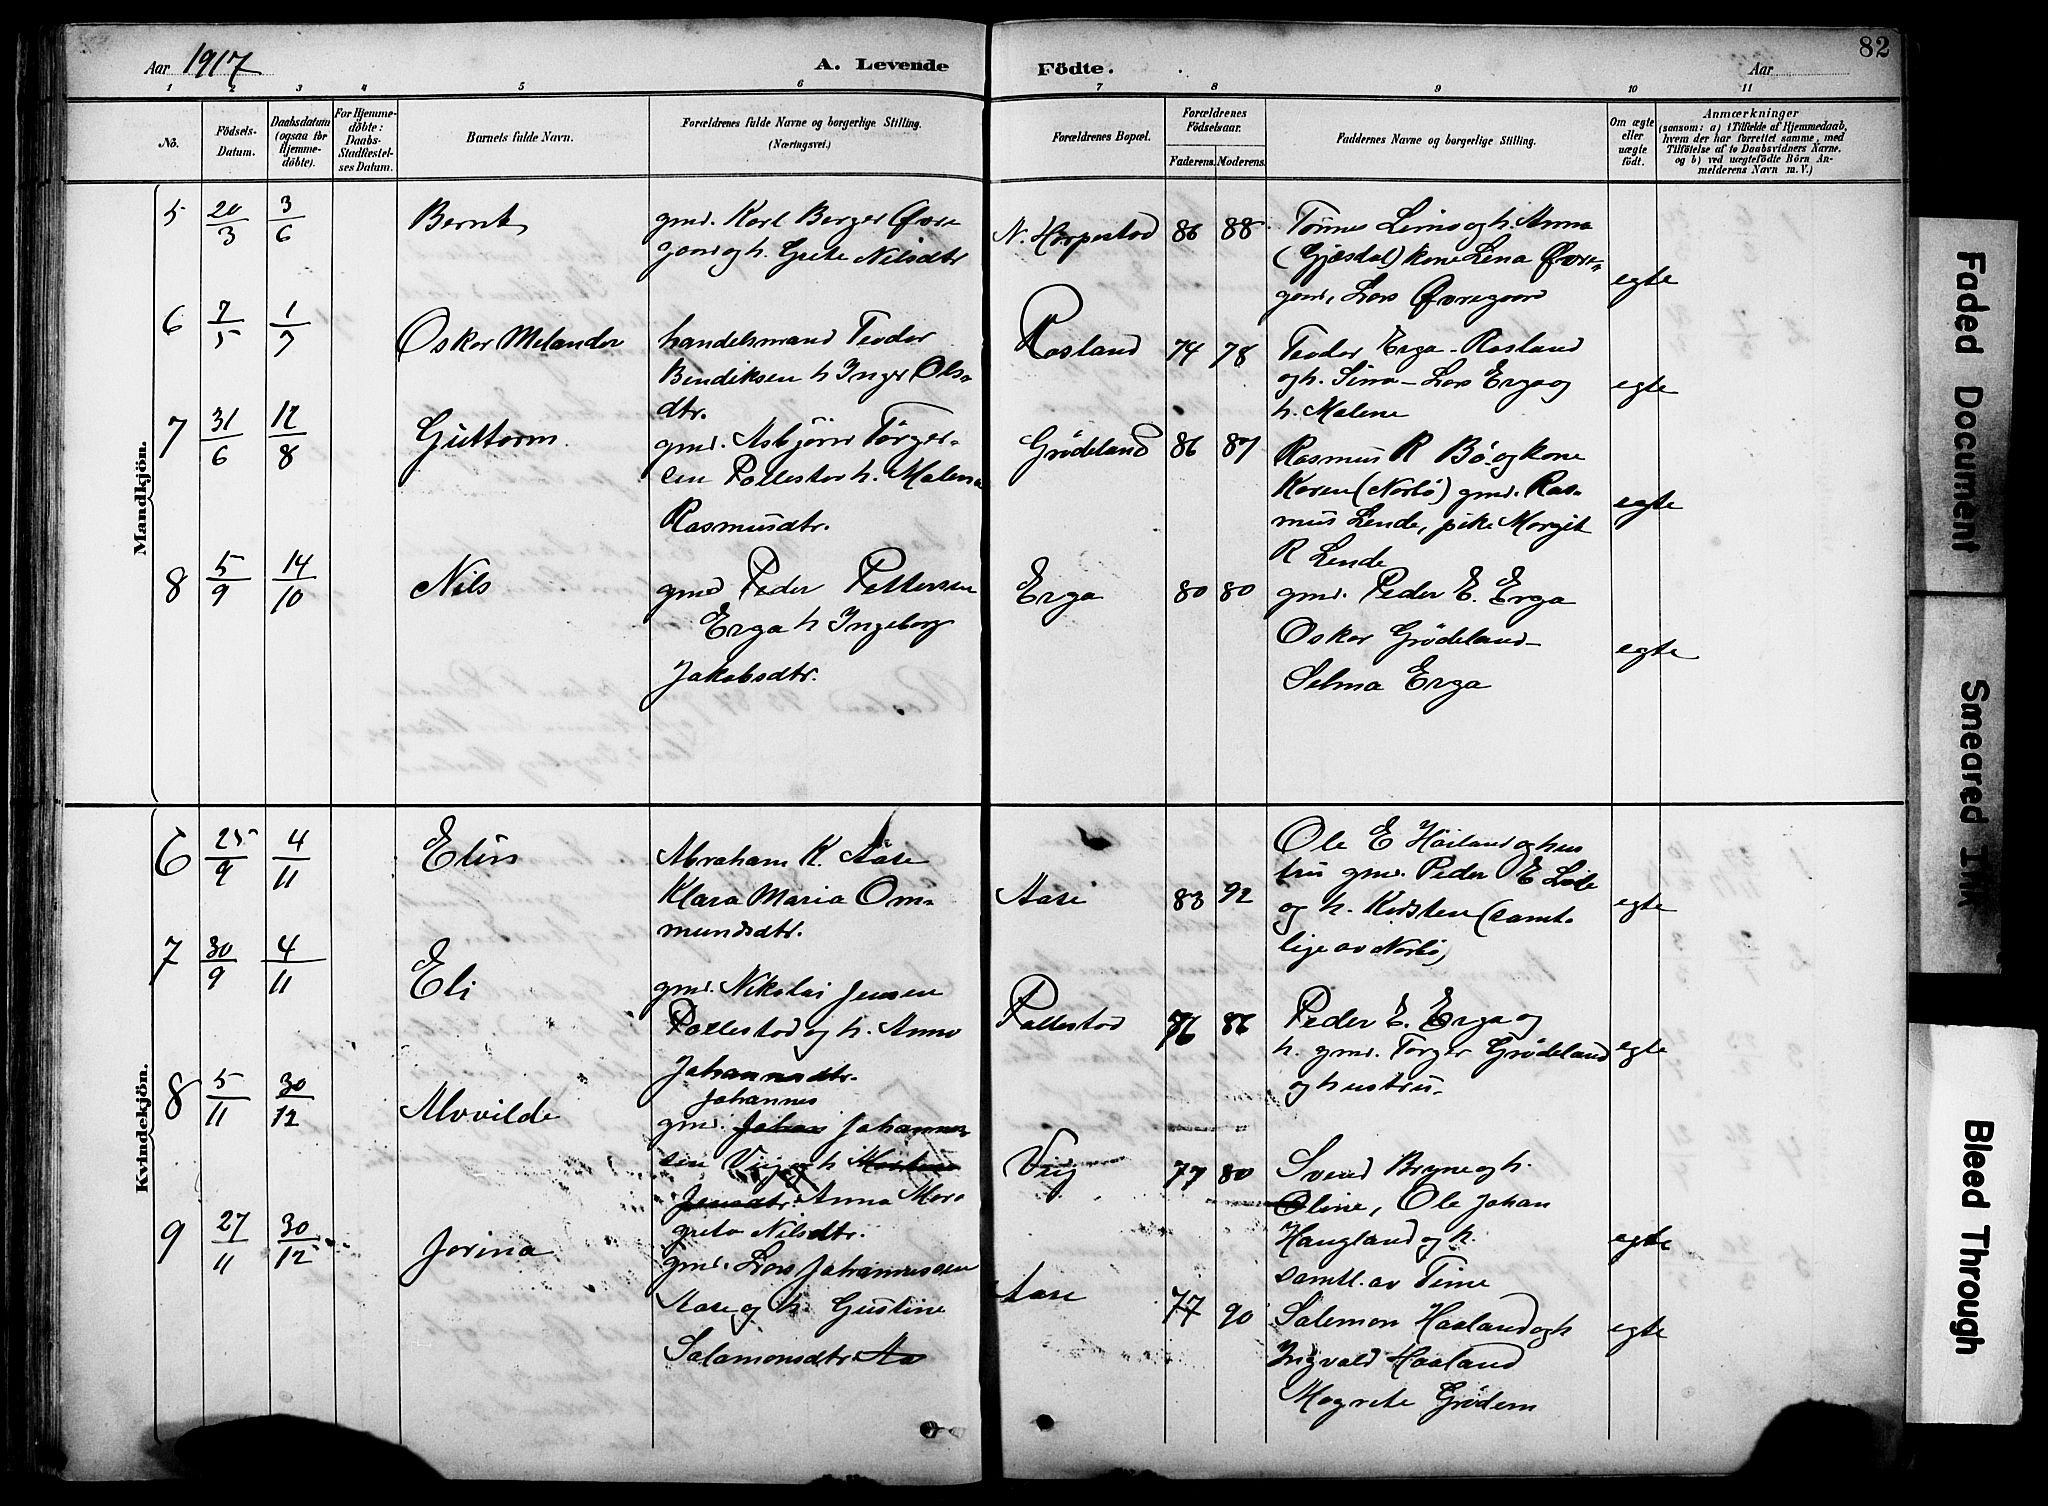 Aar 1917
A. Levende Födte.
Aar
82
1 2 3 4 5 6 7 8 9 10 11
No.
Födsels-Datum.
Daabsdatum (ogsaa for Hjemmedöbte).
For Hjemmedöbte: Daabs-Stadfestelses Datum.
Barnets fulde Navn.
Forældrenes fulde Navne og borgerlige Stilling.
(Næringsvei.)
Forældrenes Bopæl.
Forældrenes Födselsaar.
Faderens. Moderens.
Faddernes Navne og borgerlige Stilling.
Om ægte eller uægte födt.
Anmærkninger
(saasom: a) i Tilfælde af Hjemmedaab, hvem der har forrettet samme, med Tilföielse af to Daabsvidners Navne, og b) ved uægtefödte Börn Anmelderens Navn m. V.)
Mandkjön.
5 20/3 3/6 Bernt
gmd. Karl Berger Øvre-
gaard og h. Grete Nilsdtr
N. Horpestad 86 88
Tønnes Limo og h. Anna
(Gjæsdal) kone Lena Øvre-
gaard, Lars Øvregaard
egte
6 7/5 1/7 Oskar Melander
handelsmand Teodor
Bendiksen h Inger Ols-
dtr.
Rosland 74 78
Teodor Erga - Rosland
og h. Sina - Lars Erga og
h. Malene
egte
7 31/6 12/8 Guttorm
gmd. Asbjörn Törger-
sen Pollestad h. Malena
Rasmusdtr.
Grödeland 86 87
Rasmus R Bö og kone
Karen (Norbö) gmd. Ras-
mus Lende, pike Margit
R Lende
egte
8 5/9 14/10 Nils
gmd Peder Pettersen
Erga h Ingeborg
Jakobsdtr.
Erga 80 80
gmd. Peder E. Erga
Oskar Grödeland -
Selma Erga
egte
Kvindekjön.
6 25/9 4/11 Elins
Abraham K. Aase
Klara Maria Om-
mundsdtr.
Aase 83 92
Ole E Höiland og hus
tru gmd. Peder E Lode
og h. Kirsten (samt-
lige av Norbö)
egte
7 30/9 4/11 Eli
gmd. Nikolai Jensen
Pollestad og h. Anna
Johannsdtr.
Pollestad 76 86
Peder E. Erga og
h. gmd. Torger Grödeland
og hustru.
egte
8 5/11 30/12 Alvilde
Johannes
gmd. Johan Johannes-
sen Veig og h Martine
Jensdtr. Anna Mar-
greta Nilsdtr.
Vrig 77 80
Svend Bryne og h.
Oline, Ole Johan
Haugland og h.
samtl. av Time
egte
9 27/11 30/12 Jorina
gmd. Lars Johannessen
Aase og h. Gustine
Salamonsdtr. Aa
Aase 77 90
Salemon Haaland og h
Ingvald Haaland
Magrete Grödem
egte
Faded Document
Smeared Ink
Bleed Through